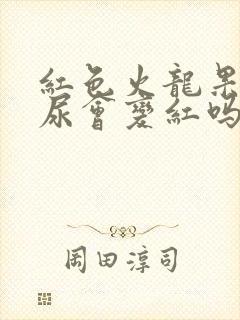 紅色火龍果
尿會變紅嗎
岡田淳司